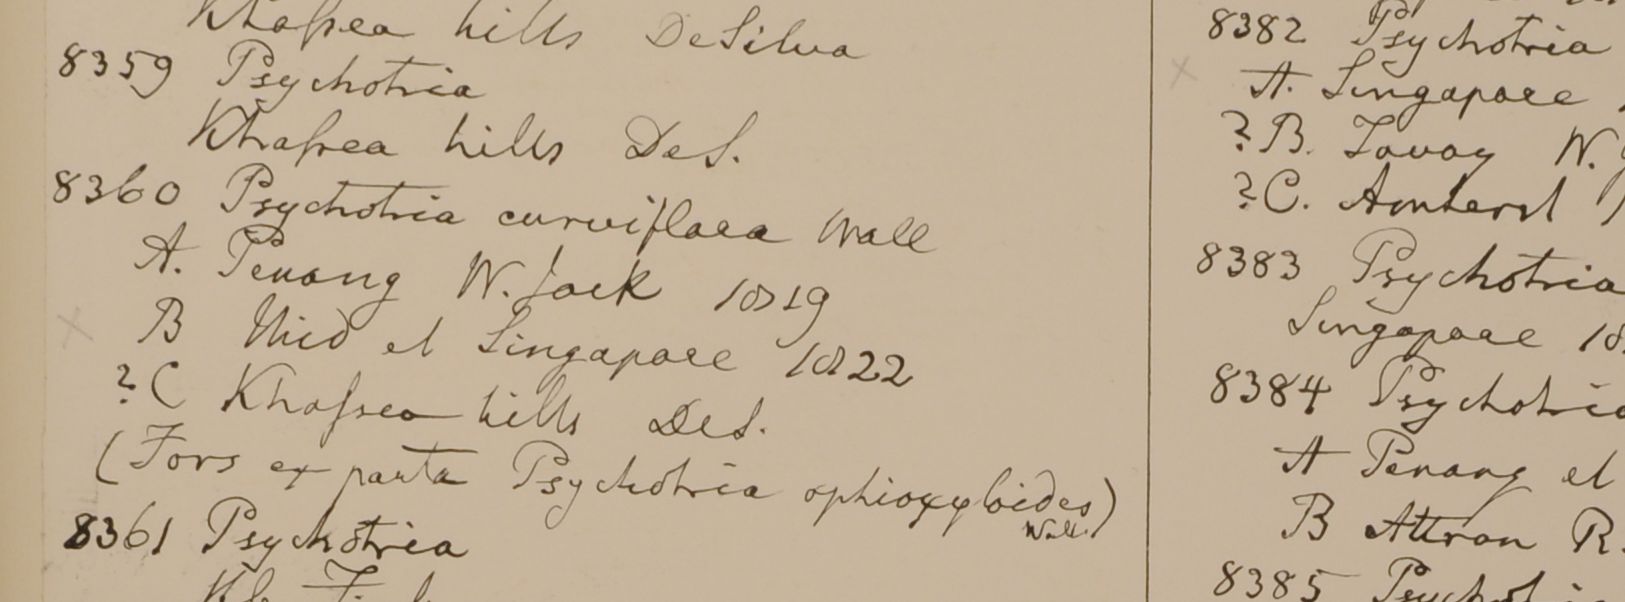 Khaſsea hills DeSilva
8359 Psychotria
Khaſsea hills DeS.
8360 Psychotria curviflora Wall
A. Penang W. Jack 1819
B Ibid et Singapore 1822
? C Khaſsea hills DeS.
(Fors ex parte Psychotria ophioxyloides)
Wall.
8361 Psychotria
8382 Psychotria
A. Singapore
? B. Tavoy W.
? C. Amherst
8383 Psychotria
Singapore 18
8384 Psychotria
A Penang et
B Attran R.
8385 Psychotri